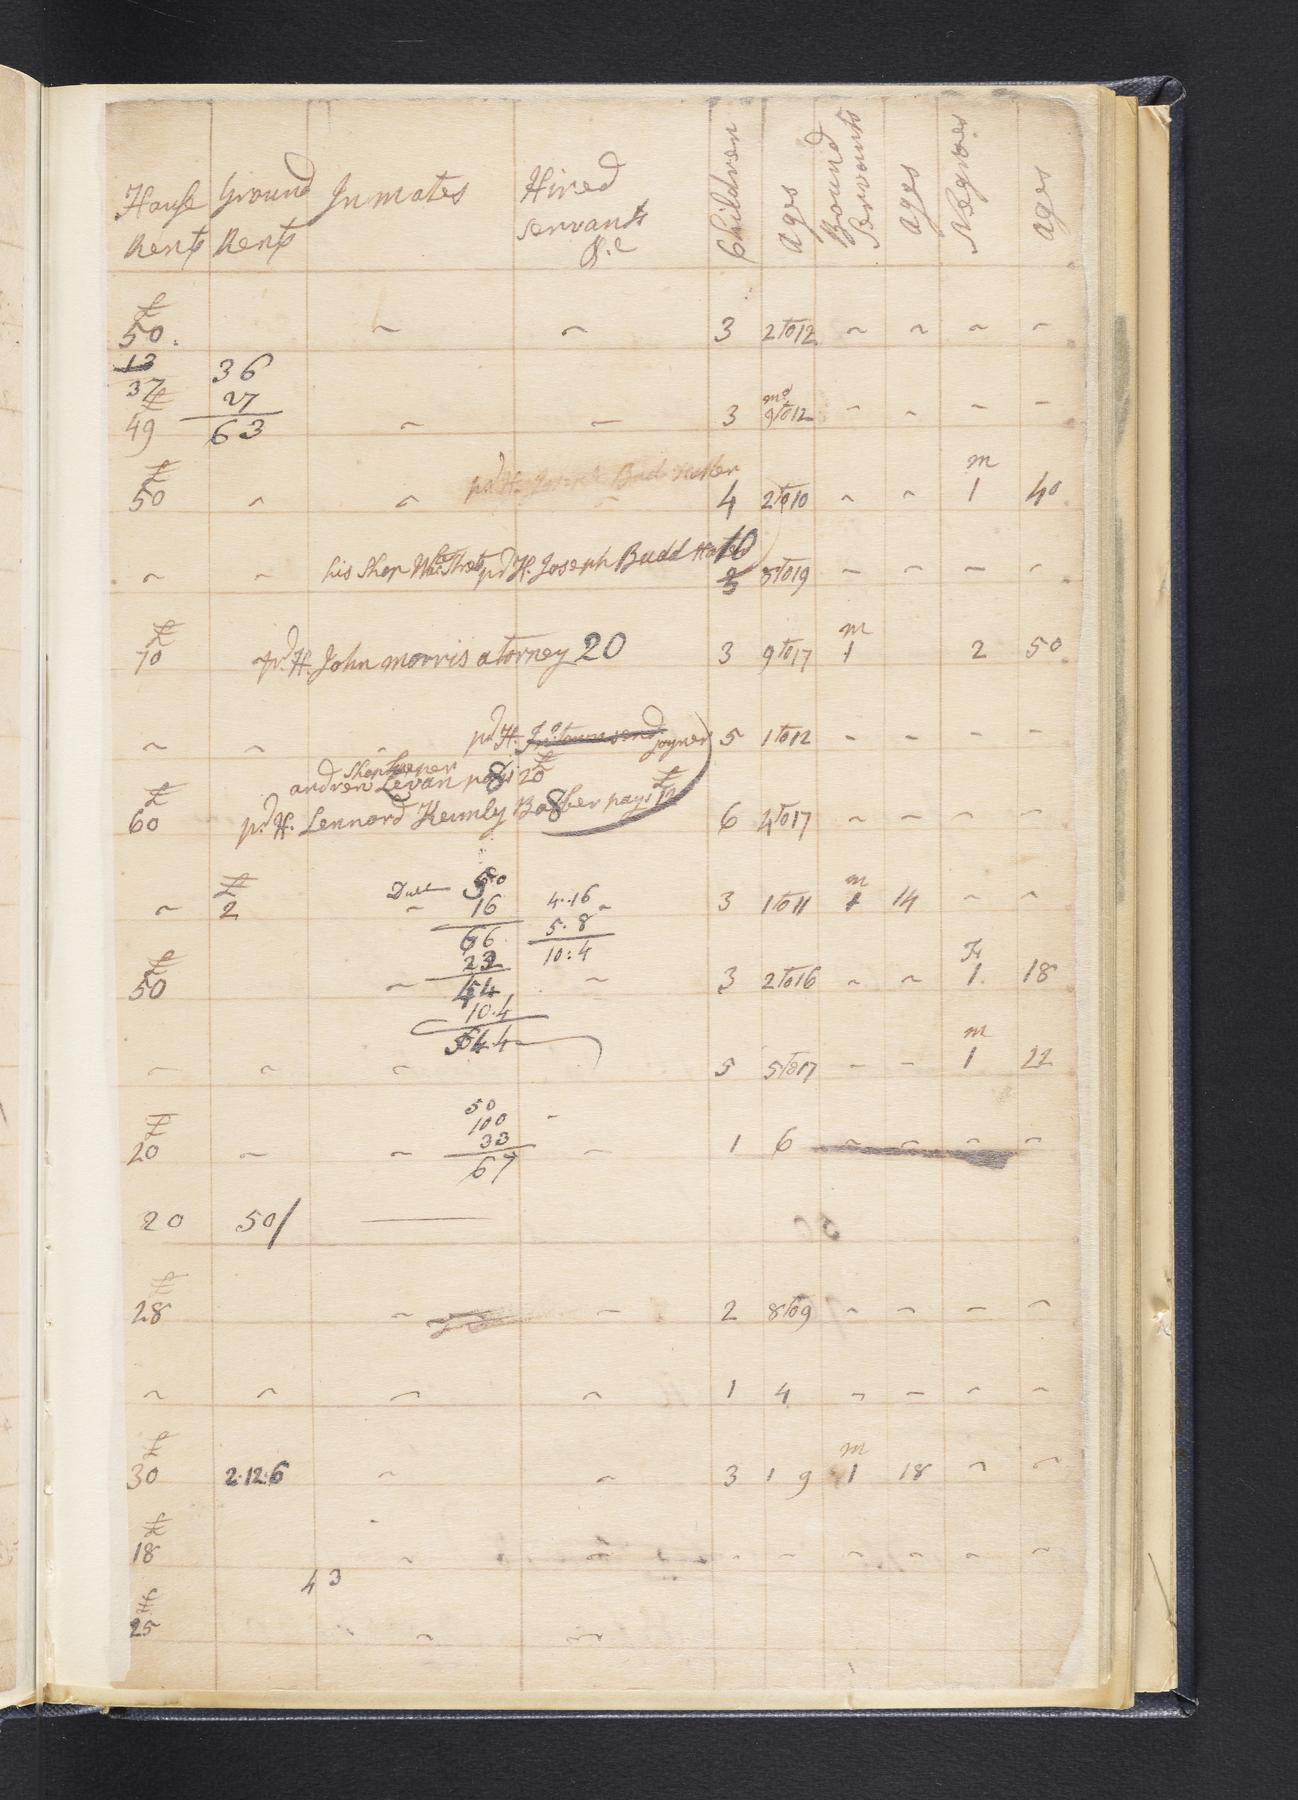 House Rents Ground Rents Inmates Hired servants &c Children ages Bound Servants ages Negroes ages
£
50. ~ ~ 3 2 to 12 ~ ~ ~ ~
13 36
37 27
£ mo
49 63 ~ ~ 3 9 to 12 ~ ~ ~ ~
£ pd H. Joseph Bud Hatter m
50 ~ ~ 4 2 to 10 ~ ~ 1 40
his Shop pd H. Joseph Budd 10
~ ~ 3 8 to 19 ~ ~ ~ ~
£ m
70 pd H. John morris atorney 20 3 9 to 17 1 2 50
~ ~ pd H. Jno townsend joyner 5 1 to 12 ~ ~ ~ ~
Shopkeeper
£ andrew Levan pays 8 20 £
60 pd H. Lennard Keimly Barber 8 pays 12 £ 6 4 to 17 ~ ~ ~ ~
£ Dull 50 m
~ 2 ~ 16 4..16 ~ 3 1 to 11 1 14 ~ ~
66 5.8
£ 22 10:4 F
50 ~ 54 ~ 3 2 to 16 ~ ~ 1 18
10.4
54.4 m
~ ~ ~ 5 5 to 17 ~ ~ 1 22
50
£ 100
20 ~ ~ 33 ~ 1 6 ~ ~ ~ ~
67
20 50/
£
28 ~ ~ 2 8 to 9 ~ ~ ~ ~
~ ~ ~ ~ 1 4 ~ ~ ~ ~
£ m
30 2.12.6 ~ ~ 3 1 9 1 18 ~ ~
£
18 ~ ~ ~ ~ ~ ~ ~ ~
43
£
25 ~ ~